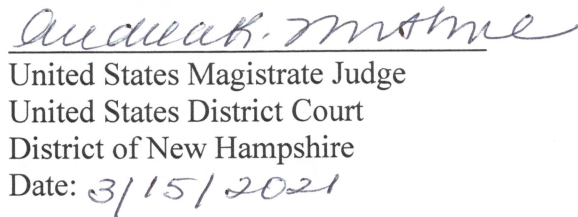 Andrea K. Johnstone
United States Magistrate Judge
United States District Court
District of New Hampshire
Date: 3/15/2021